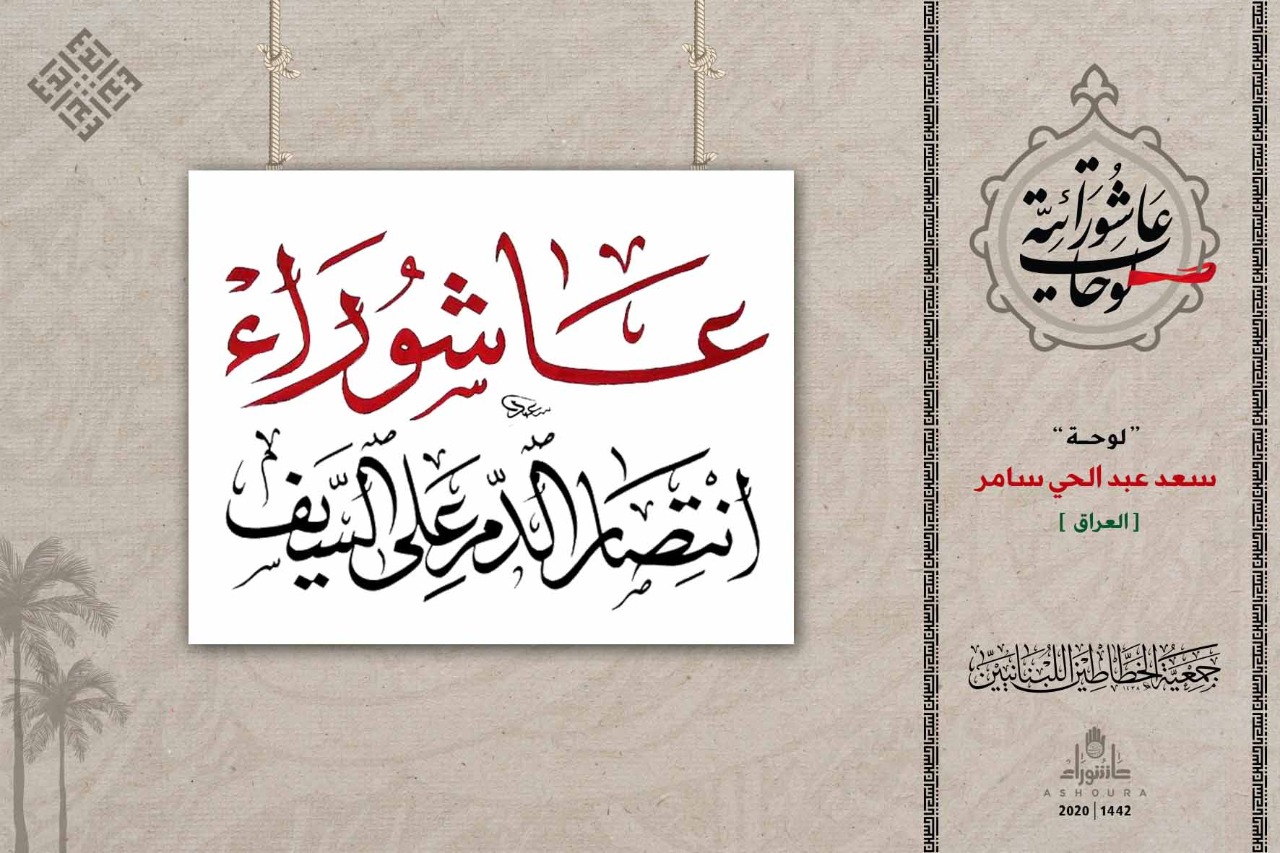 عَاشُورَاءْ
سعد
انْتِصَارُ الدَّمِ عَلَى السَّيْف
لوحات عَاشُورَائِيَّة
"لوحـة"
سعد عبد الحي سامر
[العراق]
جَمْعِيَّةُ الخَطَّاطِيْنَ اللُّبْنَانِيِّيْنَ
١٤٣٨
عاشوراء
ASHOURA
2020 | 1442